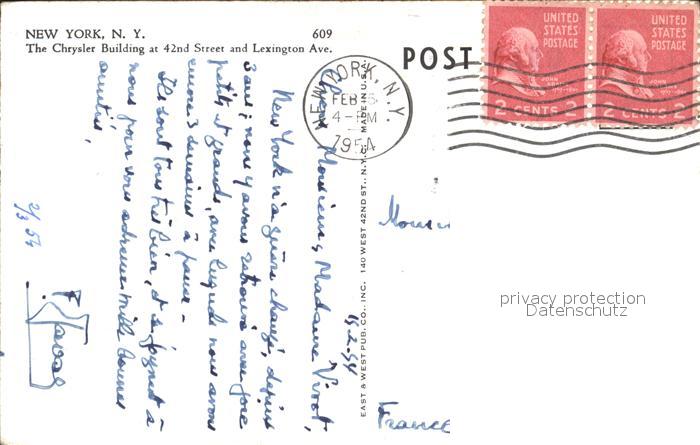 NEW YORK, N. Y. 609
The Chrysler Building at 42nd Street and Lexington Ave.
POST
UNITED STATES POSTAGE
JOHN ADAMS
2 CENTS 2
UNITED STATES POSTAGE
JOHN ADAMS
2 CENTS 2
NEW YORK, N.Y.
FEB
4-PM
1954
EAST & WEST PUB. CO., INC. 140 WEST 42ND ST., N.Y.C. MADE IN U.S.A.
15.2.54
Chers Monsieur, Madame Vivot,
New York n'a guère changé, depuis
3 ans; nous y avons retrouvé avec joie
petits et grands, avec lesquels nous avons
encore 3 semaines à passer -
Ils sont tous très bien, et se joignent à
nous pour vous adresser mille bonnes
amitiés,
2/3 54
Monsieur
France
privacy protection
Datenschutz